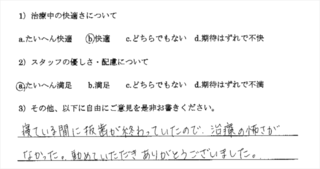 1）治療中の快適さについて
a.たいへん快適 b.快適 c.どちらでもない d.期待はずれで不快
2）スタッフの優しさ・配慮について
a.たいへん満足 b.満足 c.どちらでもない d.期待はずれで不満
3）その他、以下に自由にご意見を是非お書きください。
寝ている間に抜歯が終わっていたので、治療の怖さが
なかった。勧めていただきありがとうございました。